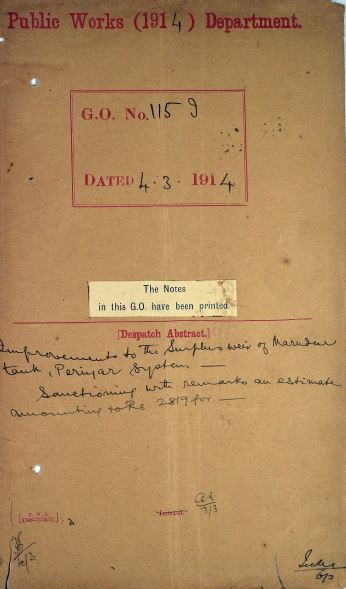 Public Works (1914) Department.
G.O. No. 115 I
DATED 4.3.1914
The Notes
in this G.O. have been printed
[Despatch Abstract.]
Improvements to the Surplus weir of
tank, Periyar System. —
Sanctioning with remarks an estimate
amounting to Rs. 2819 for —
Indexed.
7/3
Index